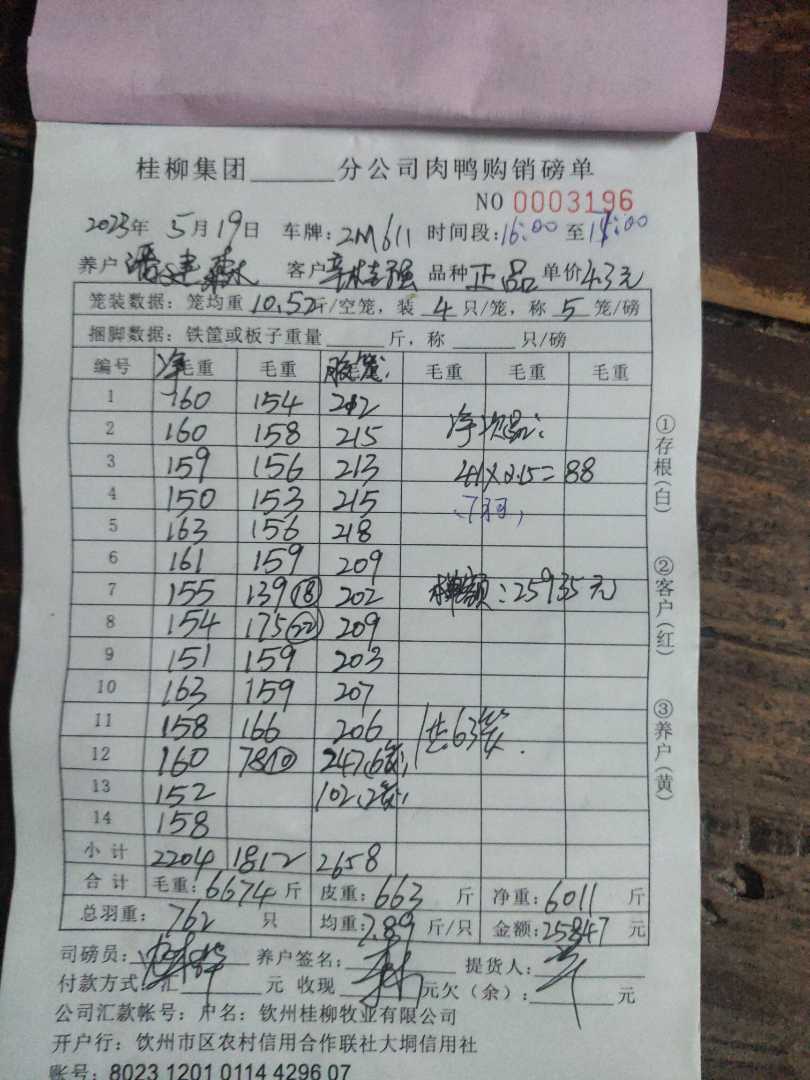 桂柳集团______分公司肉鸭购销磅单
NO 0003196
2023年 5月19日 车牌: 2M611 时间段: 16:00 至
养户 客户 品种 正品 单价 4.3元
笼装数据: 笼均重 10.52 斤/空笼, 装 4 只/笼, 称 5 笼/磅
捆脚数据: 铁筐或板子重量______斤, 称______只/磅
编号 净毛重 毛重 毛重 毛重 毛重
1 160 154 212
2 160 158 215 净次品:
3 159 156 213 41×2.15=88
4 150 153 215 7羽,
5 163 156 218
6 161 159 209
7 155 139⑱ 202 25935元
8 154 175㉒ 209
9 151 159 203
10 163 159 207
11 158 166 206 共63笼.
12 160 78⑩ 247,6笼,
13 152 102,2笼,
14 158
小计 2204 1812 2658
合计 毛重: 6674 斤 皮重: 663 斤 净重: 6011 斤
总羽重: 762 只 均重: 7.89 斤/只 金额: 25847 元
司磅员: 养户签名: 提货人:
付款方式: 汇______元 收现______元欠(余):______元
公司汇款帐号: 户名: 钦州桂柳牧业有限公司
开户行: 钦州市区农村信用合作联社大垌信用社
账号: 8023 1201 0114 4296 07
①存根(白)
②客户(红)
③养户(黄)